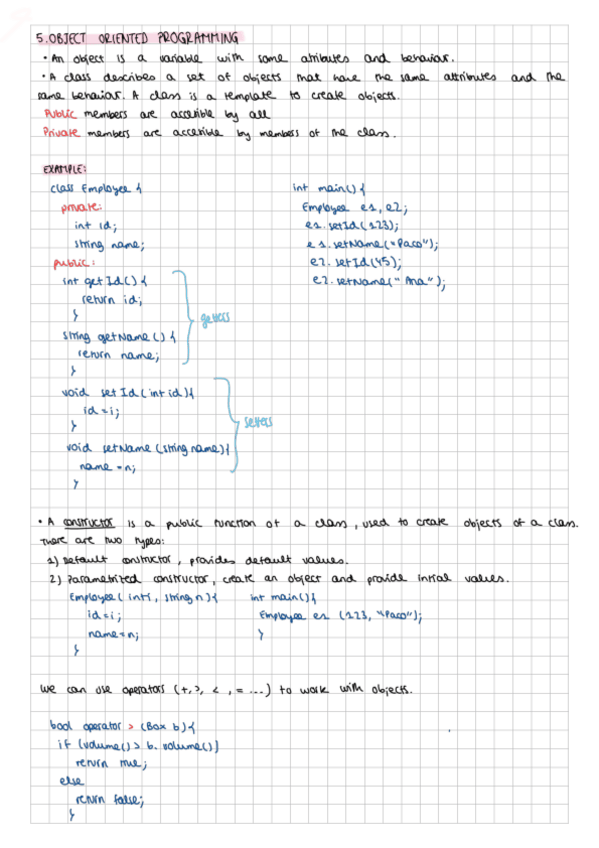 5. OBJECT ORIENTED PROGRAMMING
· An object is a variable with some attributes and behavior.
· A class describes a set of objects that have the same attributes and the
same behavior. A class is a template to create objects.
Public members are accesible by all
Private members are accesible by members of the class.
EXAMPLE:
class Employee {
private:
int id;
string name;
public:
int getId() {
return id;
}
string getName () {
return name;
}
getters
void setId (int id){
id = i;
}
void setName (string name){
name = n;
}
setters
int main() {
Employee e1, e2;
e1.setId(123);
e1.setName("Paco");
e2.setId(45);
e2.setName("Ana");
· A constructor is a public function of a class, used to create objects of a class.
There are two types:
1) Default constructor, provides default values.
2) Parametrized constructor, create an object and provide initial values.
Employee (int i, string n) {
id = i;
name = n;
}
int main() {
Employee e1 (123, "Paco");
}
We can use operators (+, >, <, = ...) to work with objects.
bool operator > (Box b) {
if (volume() > b. volume())
return true;
else
return false;
}